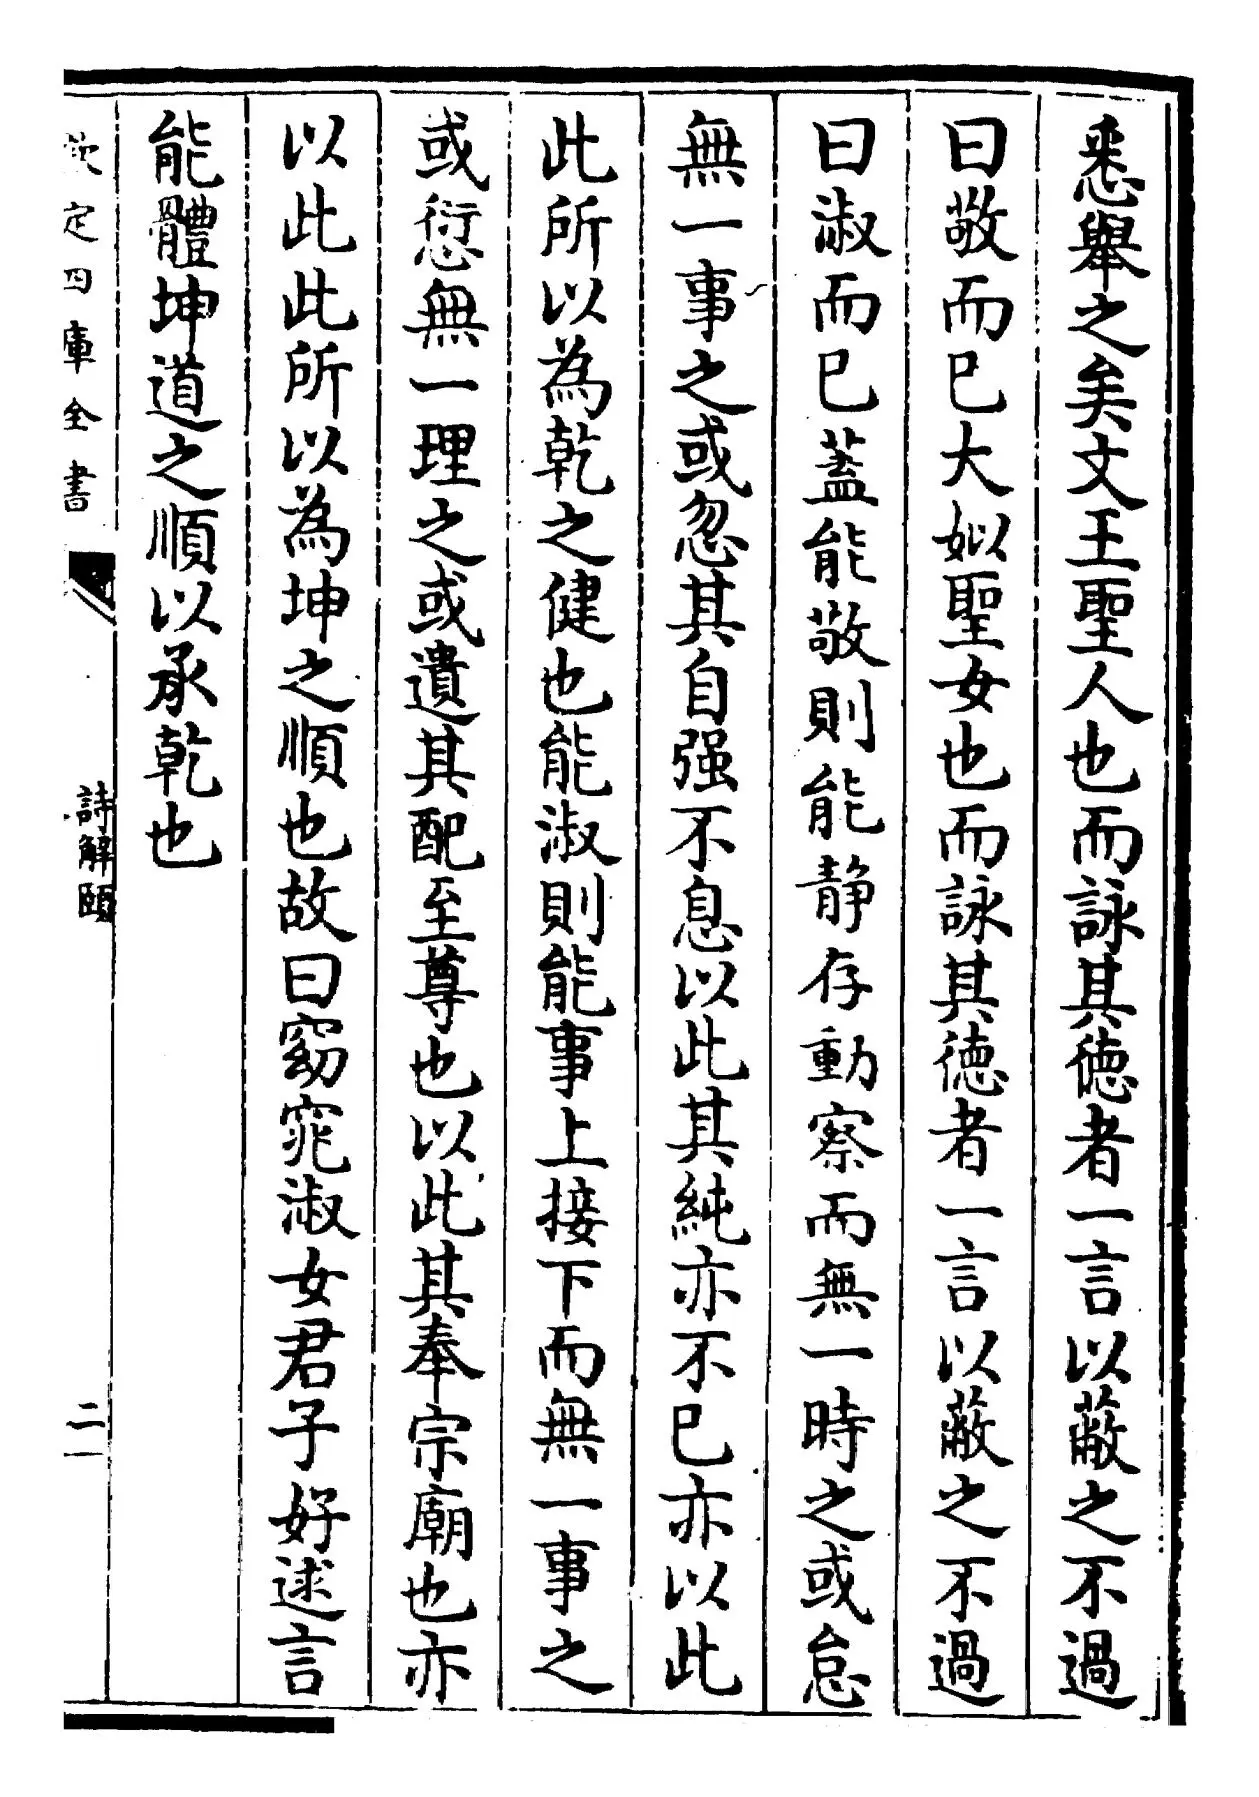 悉舉之矣文王聖人也而詠其徳者一言以蔽之不過
曰敬而已大姒聖女也而詠其徳者一言以蔽之不過
曰淑而已葢能敬則能静存動察而無一時之或怠
無一事之或忽其自强不息以此其純亦不已亦以此
此所以為乾之健也能淑則能事上接下而無一事之
或愆無一理之或遺其配至尊也以此其奉宗廟也亦
以此此所以為坤之順也故曰窈窕淑女君子好逑言
能體坤道之順以承乾也
欽定四庫全書
詩解頤
二